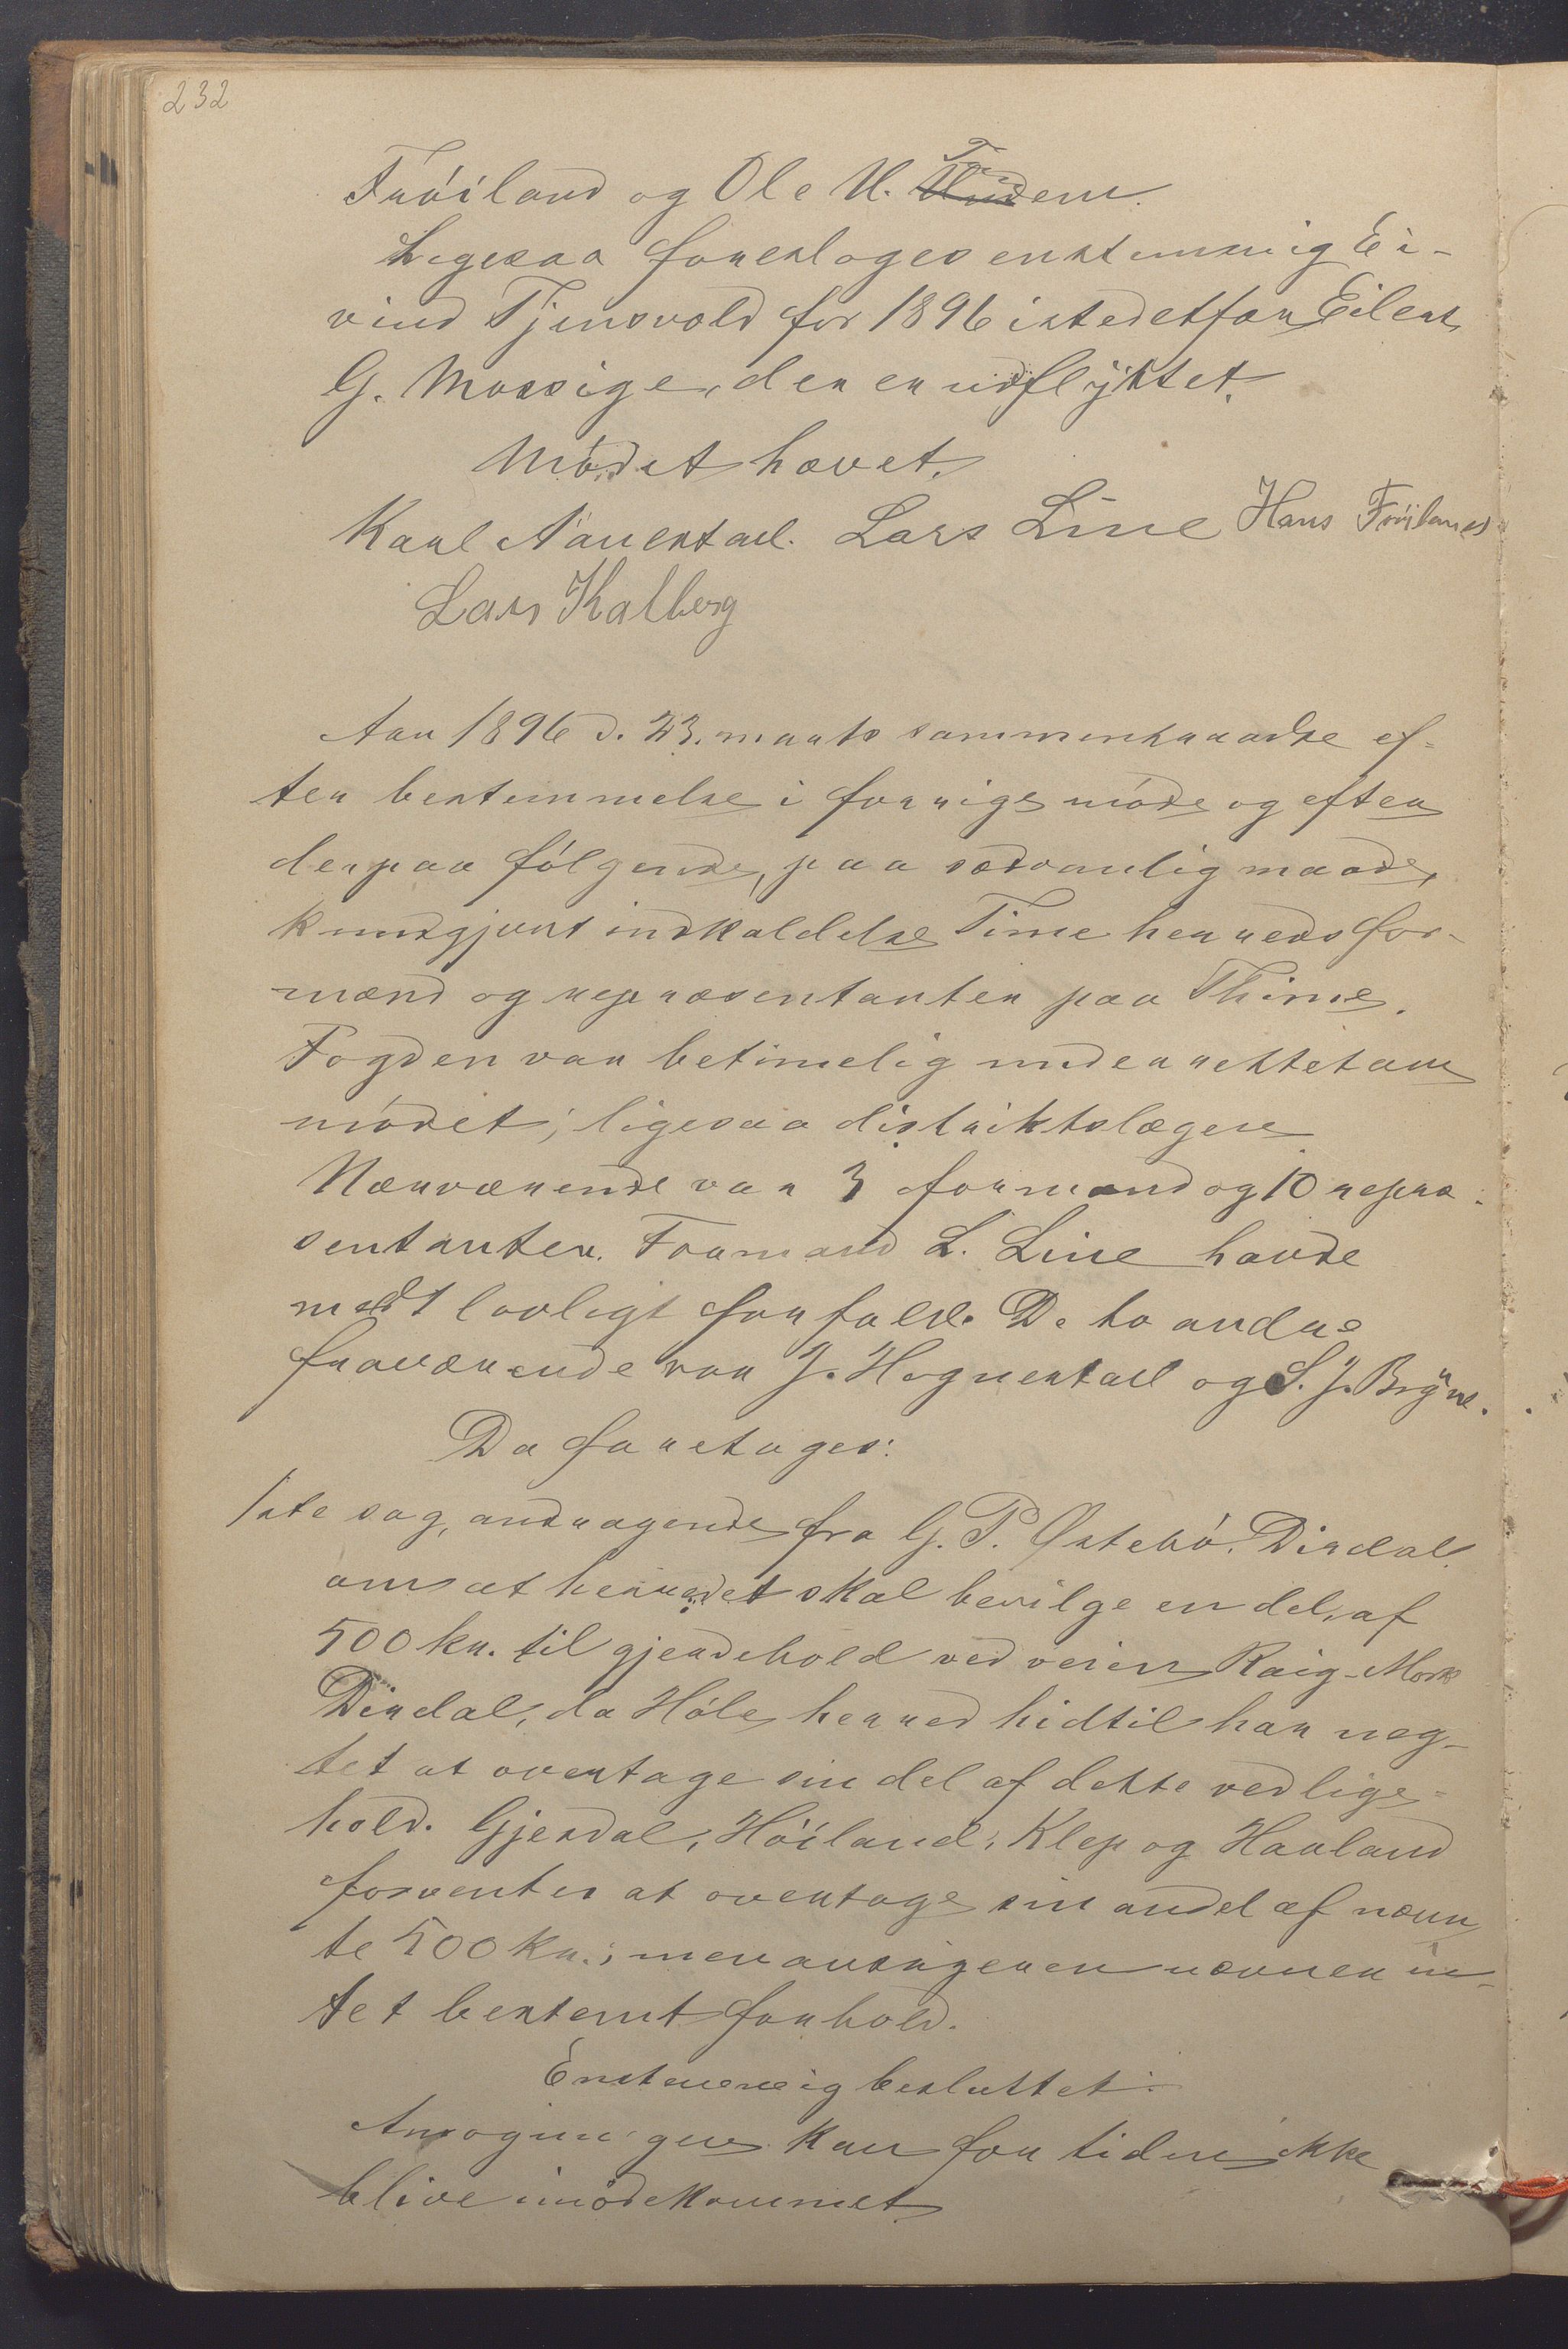 232
Fröiland og Ole U. Tendem.
Ligesaa foresloges enstemmig Ei-
vind Tjensvold for 1896 istedetfor Eilert
G. Mossige, der er udflyttet.
Mödet hævet.
Karl Nærestad. Lars Line Hans Fröiland
Lars Kalberg
Aar 1896 d. 23. marts sammentraadte ef-
ter bestemmelse i forrige möde og efter
derpaa fölgende, paa sædvanlig maade,
kundgjort indkaldelse Time herreds for-
mænd og repræsentanter paa Thime.
Fogden var betimelig underrettet om
mödet; ligesaa distriktslægen
Nærværende var 3 formænd og 10 repræ-
sentanter. Formand L. Line havde
meldt lovligt forfald. De to andre
fraværende var J. Hognestad og S. J. Bryne.
Da foretoges:
1ste sag, andragende fra G. P. Østebö. Dirdal
om at herredet skal bevilge en del af
500 kr. til gjerdehold ved veien Raig-Mork
Dirdal, da Höle herred hidtil har neg-
tet at overtage sin del af dette vedlige-
hold. Gjesdal, Höiland, Klep og Haaland
forventes at overtage sin andel af nævn
te 500 kr.; men ansögeren nævner in-
tet bestemt forhold.
Enstemmig besluttet:
Ansögningen kan for tiden ikke
blive imödekommet